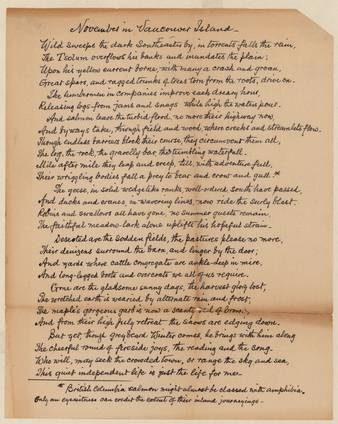 November in Vancouver Island
Wild sweeps the dark Southeaster by, in torrents falls the rain,
The Tsolum overflows his banks and inundates the plain;
Upon his yellow current borne, with many a crash and groan,
Great spars, and ragged trunks of trees torn from the roots, drive on.
The lumbermen in companies improve each dreary hour,
Releasing logs from jams and snags while high the waters pour.
And salmon leave the turbid flood, no more their highway now,
And byways take, through field and wood, where creeks and streamlets flow.
Though endless barriers block their course, they circumvent them all,
The log, the rock, the gravelly bar, the tumbling waterfall.
Mile after mile they leap and creep, till, with adventure full,
Their wriggling bodies fall a prey to bear and crow and gull.*
The geese, in solid wedgelike ranks, well-ordered, south have passed,
And ducks and cranes, in wavering lines, now ride the surly blast.
Robins and swallows all have gone, no summer guests remain,
The faithful meadow-lark alone uplifts his hopeful strain.
Deserted are the sodden fields, the pastures please no more,
Their denizens surround the barn, and linger by the door;
And yards where cattle congregate are ankle-deep in mire,
And long-legged boots and overcoats we all of us require.
Gone are the gladsome sunny days, the harvest glory lost,
The wretched earth is wearied, by alternate rain and frost,
The maple's gorgeous garb is now a scanty red of brown,
And from their high felly retreat the snows are edging down.
But yet, though greybeard Winter comes, he brings with him along
The cheerful round of fireside joys, the reading and the song.
Who will, may seek the crowded town, or range the sky and sea,
This quiet independent life is just the life for me.
* British Columbia salmon might almost be classed with amphibia.
Only an eyewitness can credit the extent of their inland journeyings.